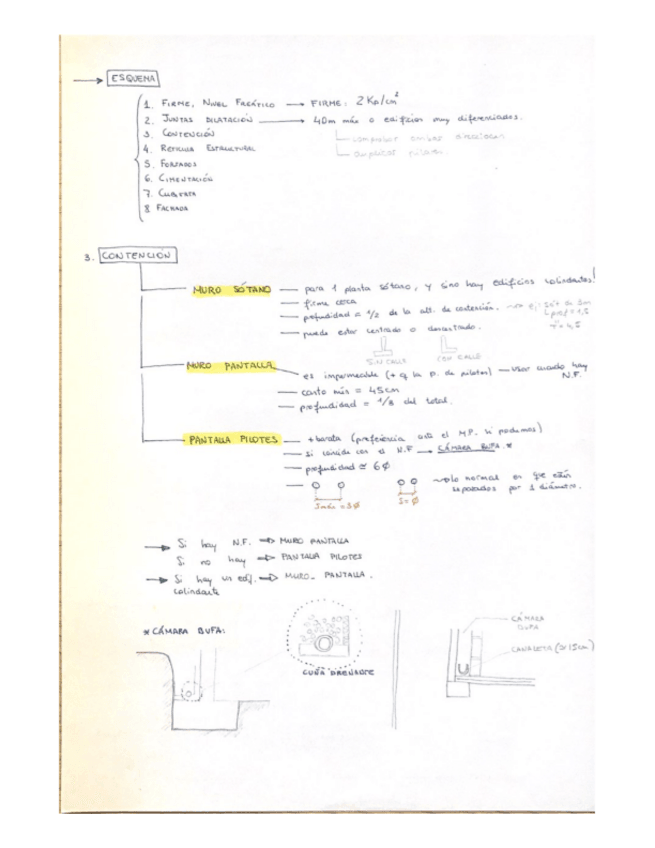 → ESQUEMA
1. FIRME, NIVEL FREÁTICO → FIRME: 2 Kg/cm²
2. JUNTAS DILATACIÓN → 40m máx o edificios muy diferenciados.
3. CONTENCIÓN
comprobar ambas direcciones
4. RETÍCULA ESTRUCTURAL
duplicar pilares
5. FORJADOS
6. CIMENTACIÓN
7. CUBIERTA
8 FACHADA
3. CONTENCIÓN
MURO SÓTANO — para 1 planta sótano, y si no hay edificios colindantes!
— firme cerca
— profundidad = 1/2 de la alt. de contención.
— puede estar centrado o descentrado.
SIN CALLE CON CALLE
MURO PANTALLA
— es impermeable (+ q la p. de pilotes) — usar cuando hay N.F.
— canto mín = 45cm
— profundidad = 1/3 del total.
PANTALLA PILOTES — + barata (preferencia ante el M.P. si podemos)
— si coincide con el N.F → CÁMARA BUFA. *
— profundidad ≃ 6Ø
→ lo normal es que estén
separados por 1 diámetro.
Smáx = 3Ø S = Ø
→ Si hay N.F. ⇒ MURO PANTALLA
Si no hay ⇒ PANTALLA PILOTES
→ Si hay un edif. ⇒ MURO PANTALLA.
colindante
* CÁMARA BUFA:
CUÑA DRENANTE
CÁMARA
BUFA
CANALETA (≥15cm)